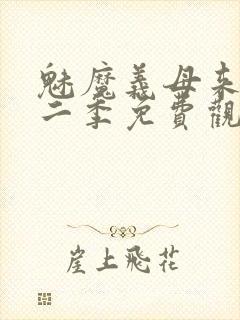 魅魔義母来
二季免費觀
崖上飛花